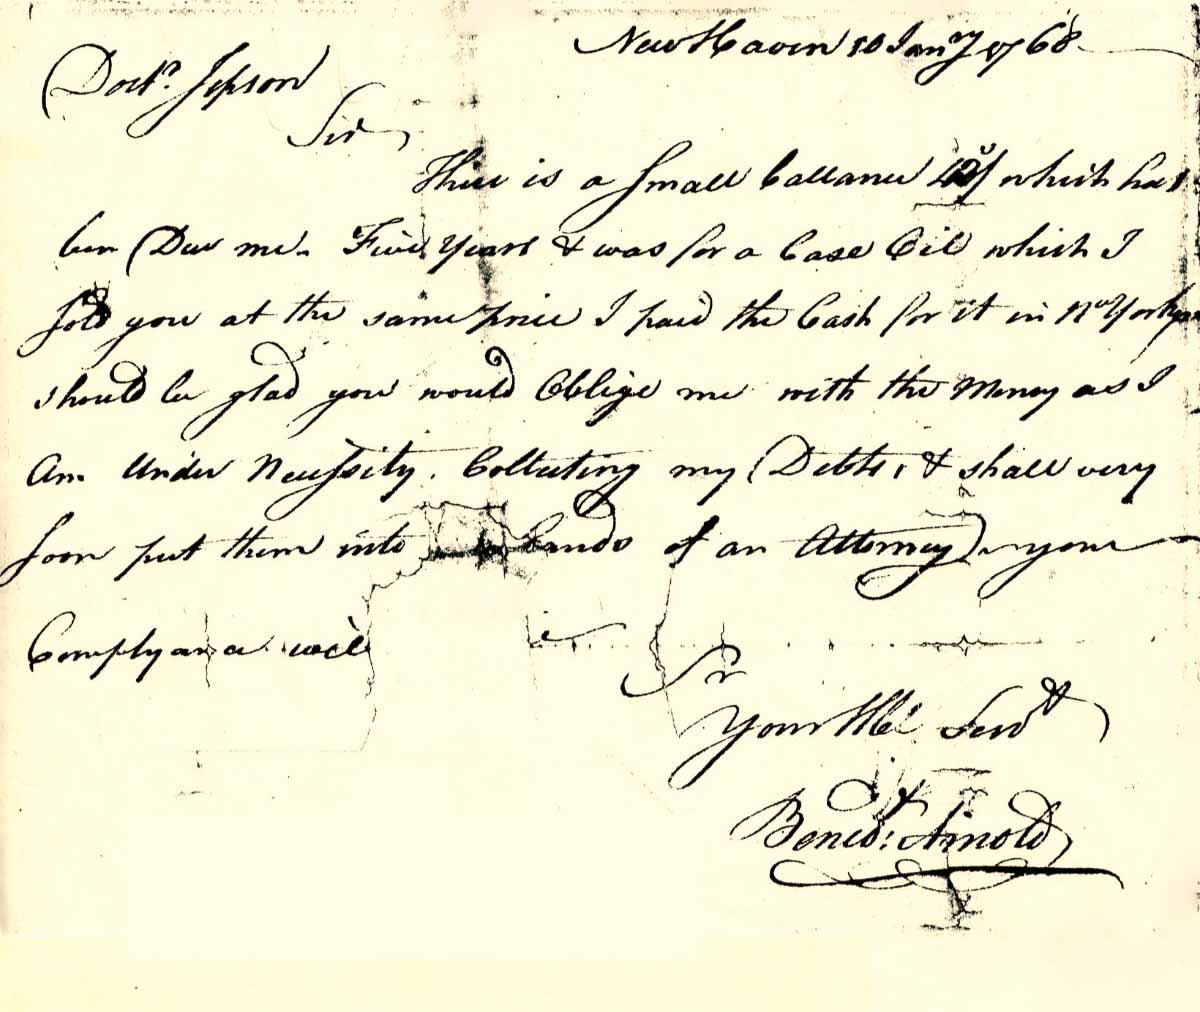 New Haven 10 Jany 1768
Doctr. Jepson
Sir
There is a small ballance which has
ben Due me Five Years & was for a Case Oil which I
sold you at the same price I paid the Cash for it in N. York
should be glad you would Oblige me with the Money as I
Am Under Necessity Collecting my Debts, & shall very
soon put them into hands of an Attorney your
Complyance will
Sr
Your Hle Servt
Benedt. Arnold